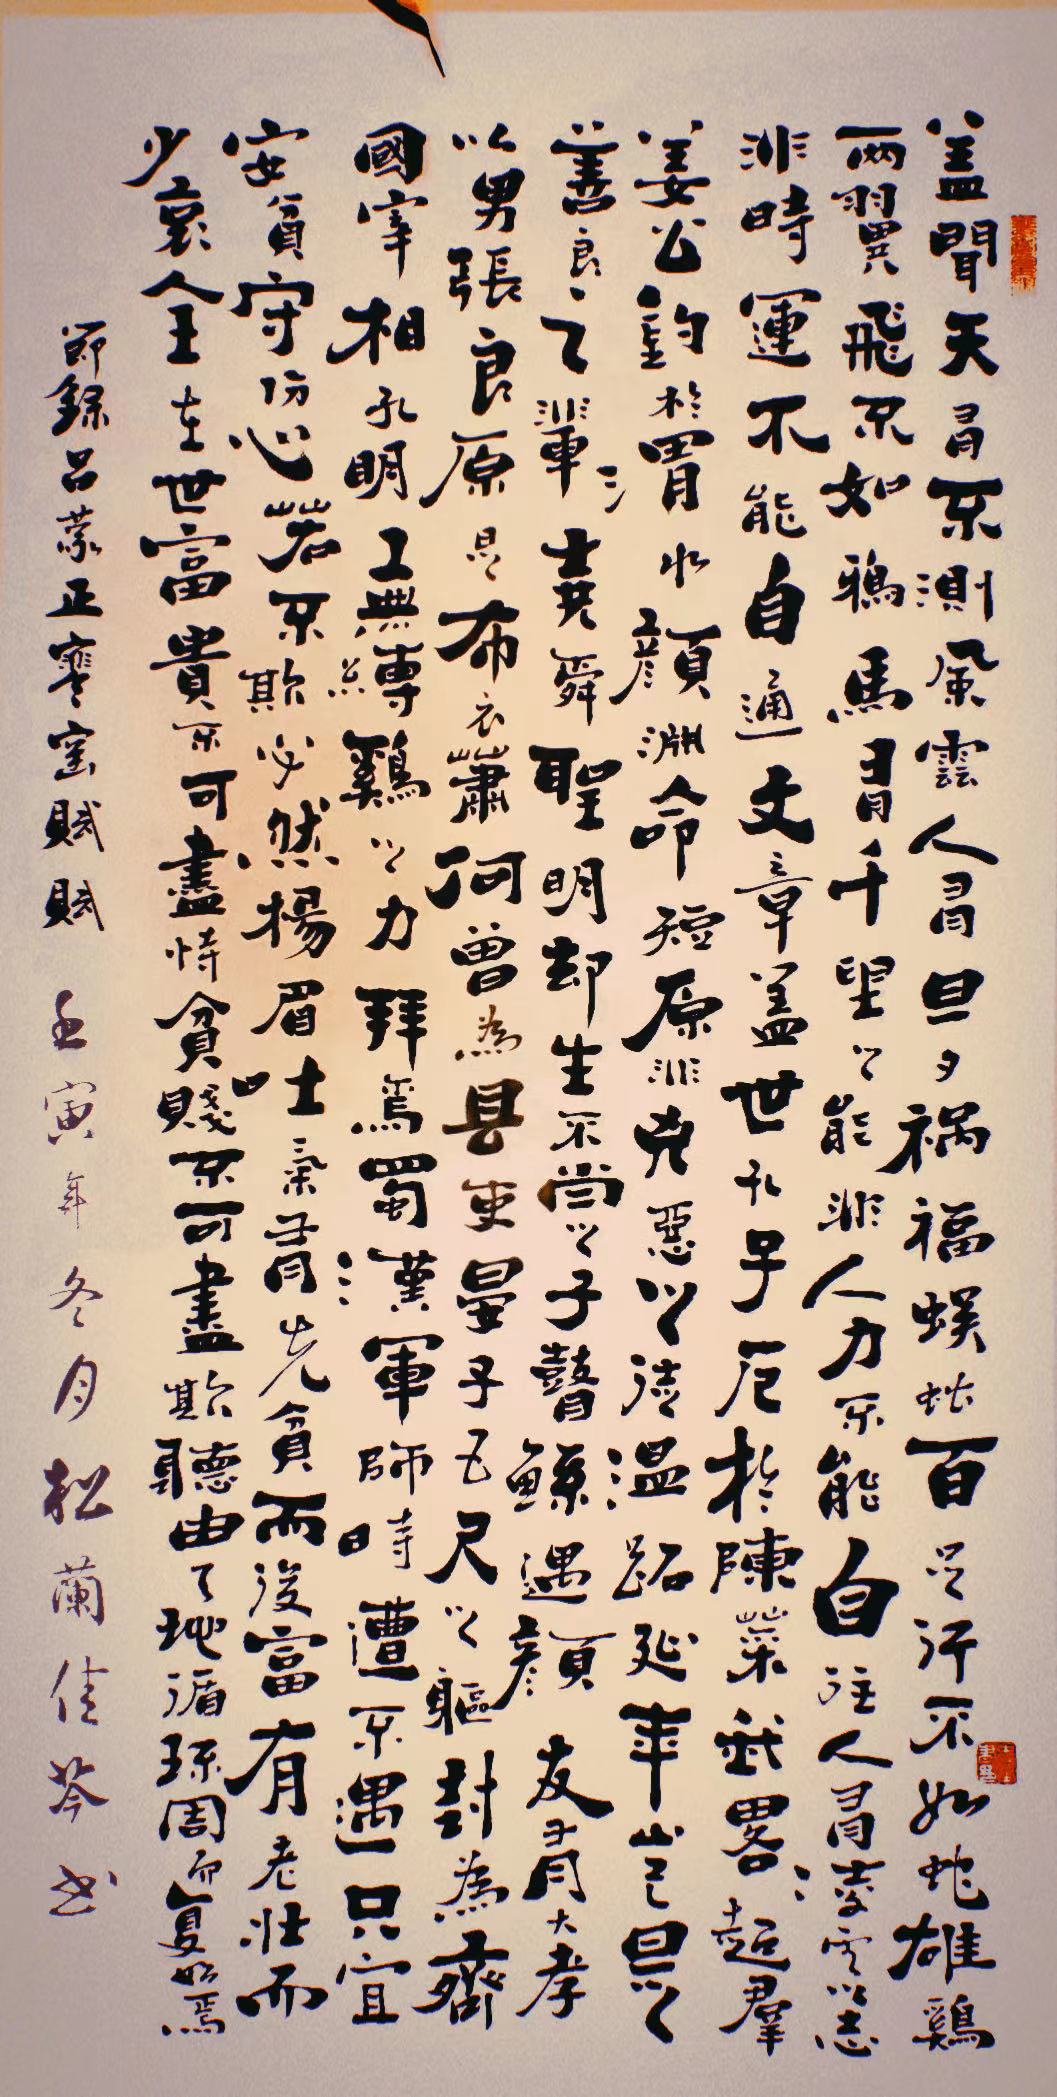 盖聞天有不測風雲人有旦夕禍福蜈蚣百足行不如蛇雄鷄
兩翼飛不如鴉馬有千里之能非人力不能自往人有凌雲之志
非時運不能自通文章盖世孔子厄於陳蔡武畧超羣
姜公釣於渭水顏淵命短原非兇惡之徒盜跖延年豈曰之
善良之輩堯舜聖明却生不尚之子瞽鯀遇顏友有大孝
以男張良原是布衣蕭何曾為县吏晏子五尺之軀封為齊
國宰相孔明工無縛鷄之力拜焉蜀漢軍師時遭不遇只宜
安貧守份心若不欺必然揚眉吐氣有先貧而後富有老壯而
少衰人生在世富貴不可盡恃貧賤不可盡欺聽由天地循環周而復始焉
節錄呂蒙正寒窑賦賦 壬寅年冬月松蘭佳芩书